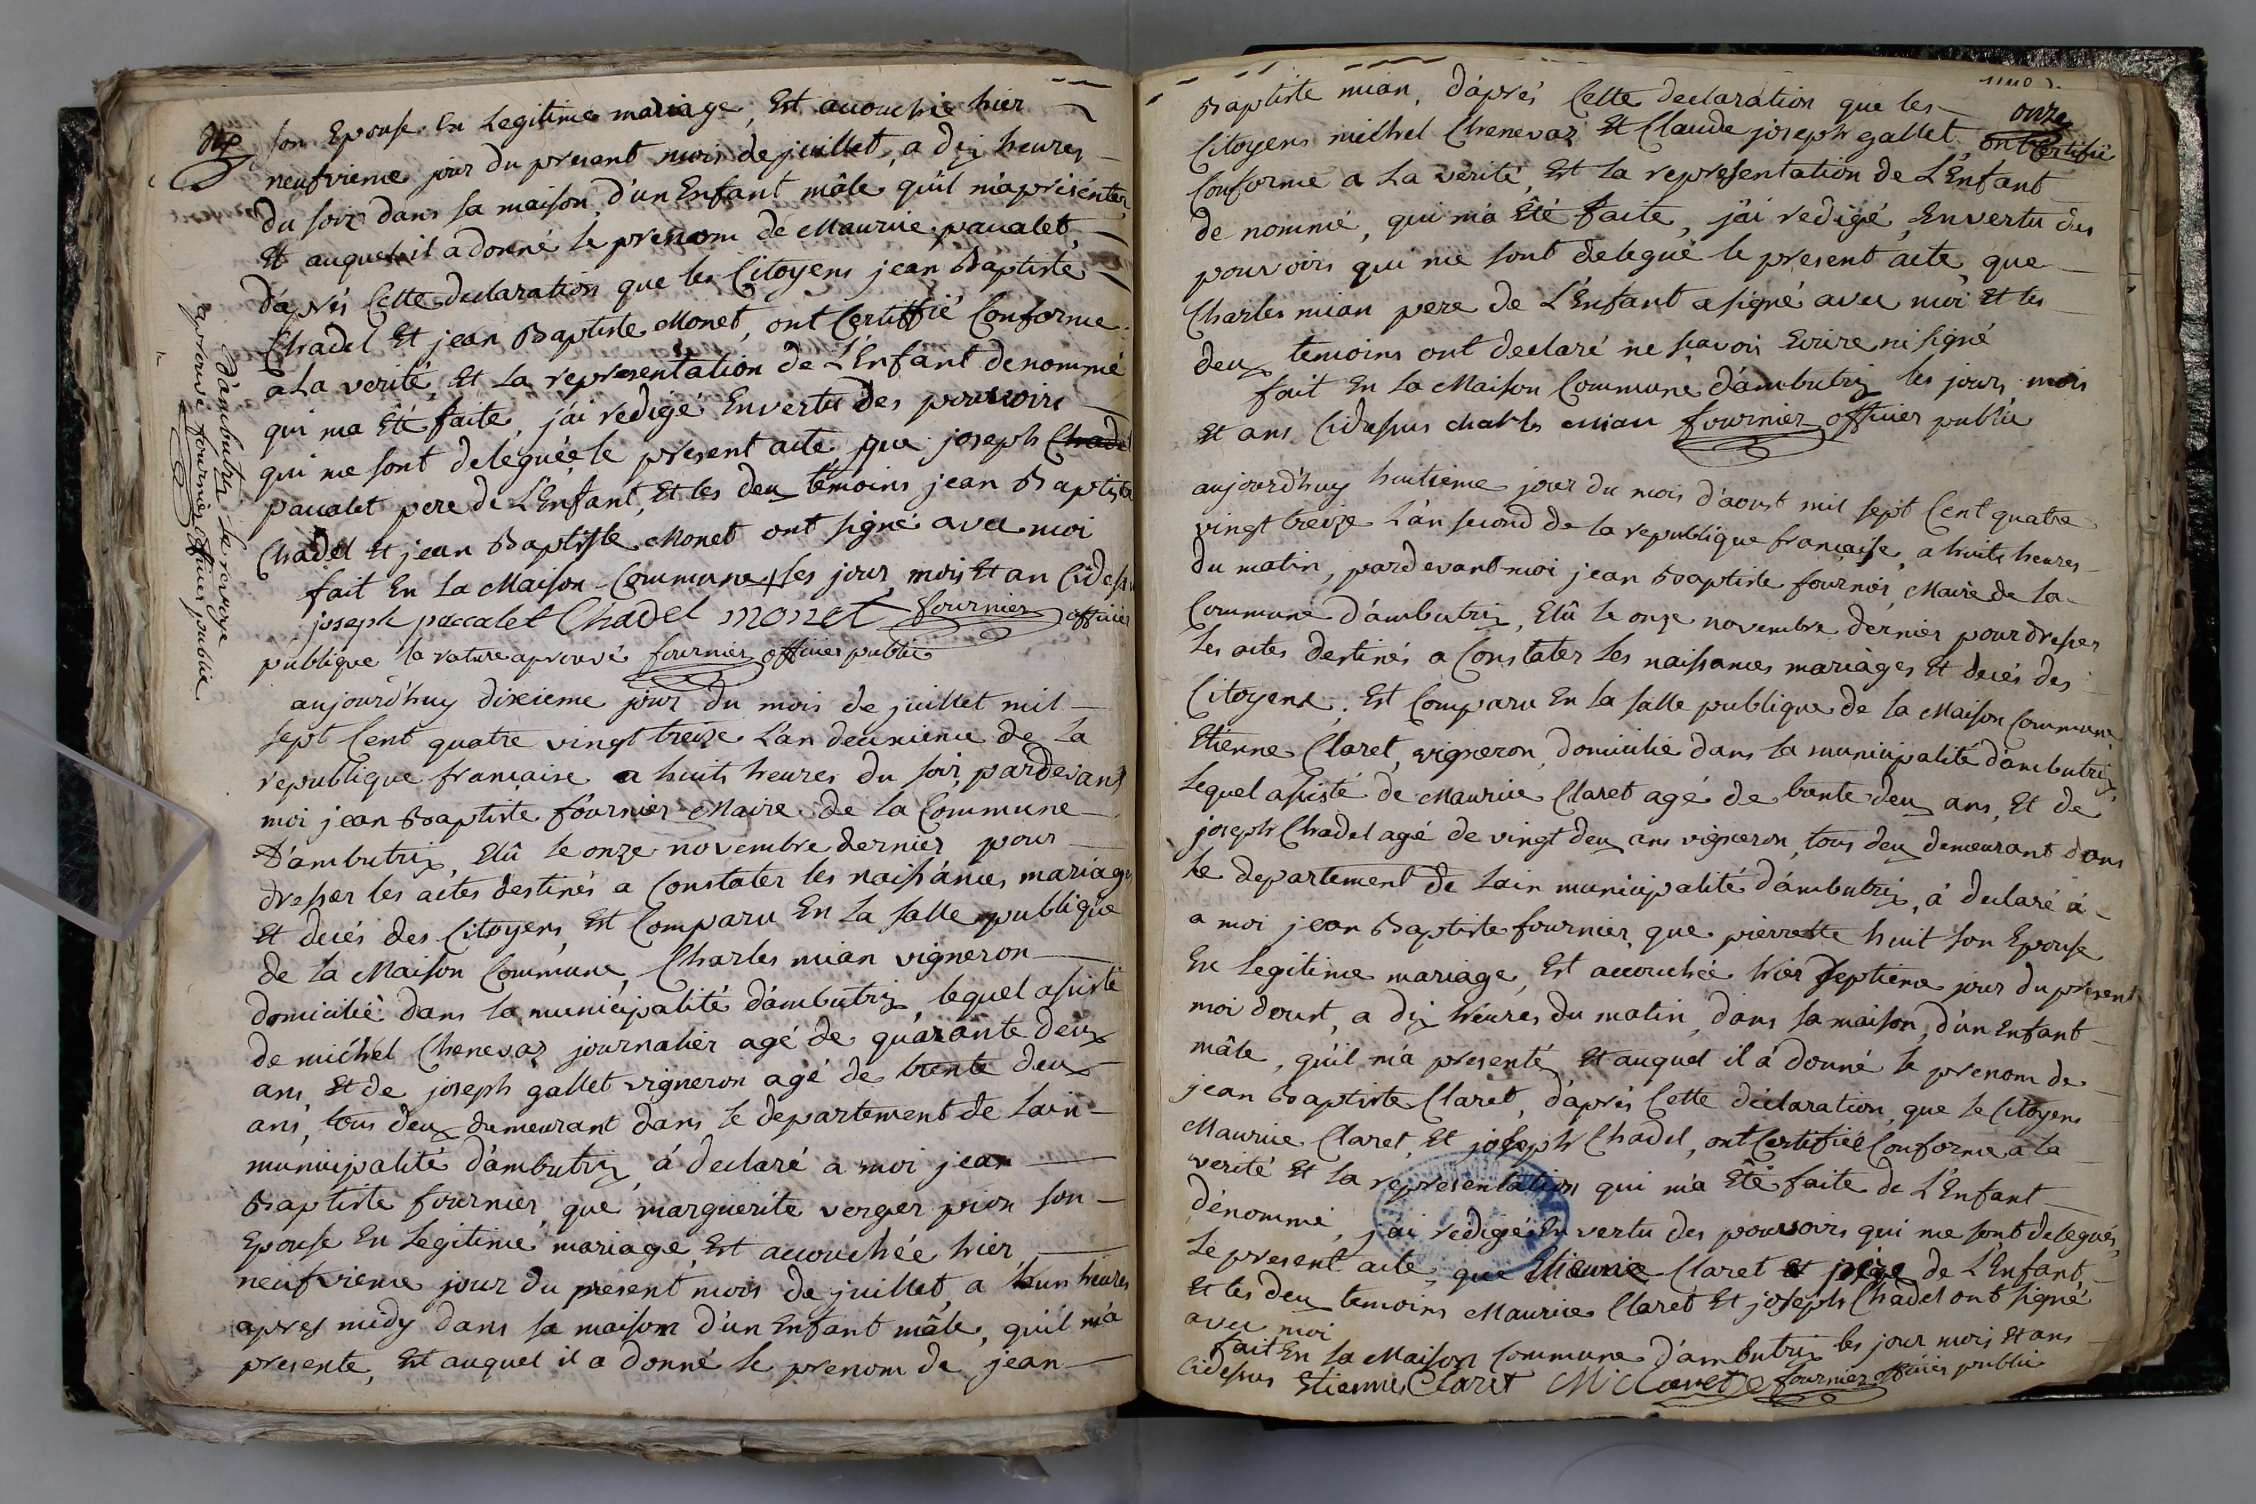 dix
son Epouse En Legitime mariage, Est acouchée hier
neufvieme jour du present mois de juillet, a dix heures
du soir dans sa maison, d'un Enfant mâle qu'il m'a présenter,
Et auquel il a donné le prenom de Maurice pacalet,
d'aprés Cette declaration que les Citoyens jean Baptiste
Chadel Et jean Baptiste Monet, ont Certiffié Conforme
a La verité, Et La representation de L'Enfant denommé
qui ma Eté faite, j'ai redigé Envertu des pouvoirs
qui me sont deleguée le présent acte, que joseph Chadel
pacalet pere de L'Enfant, Et les deux témoins jean Baptiste
Chadel Et jean Baptiste Monet ont signé avec moi
fait En La Maison Commune + les jour, mois Et an Cidessus
joseph paccalet Chadel monet fournier officier
publique la rature aprouvé fournier officier public
+ d'ambutrix le renvoye
aprouvé fournier officier public
aujourd'huy dixieme jour du mois de juillet mil
sept Cent quatre vingt treize L'an deuxieme de La
republique francaise a huits heures du soir, pardevant
moi jean Baptiste fournier Maire de la Commune
D'ambutrix, Elû le onze novembre dernier pour
dresser les actes destinés a Constater les naissances, mariages
Et decés des Citoyens, Est Comparu En La salle publique
de la Maison Commune, Charles mian vigneron
domicilié dans la municipalité d'ambutrix, lequel assisté
de michel Chenevaz journalier agé de quarante deux
ans, Et de joseph gallet vigneron agé de trente deux
ans, tous deux demeurant dans le departement de Lain
municipalité d'ambutrix, á declaré a moi jean
Baptiste fournier, que marguerite verger prion son
Epouse En Legitime mariage, Est accouchée hier
neufvieme jour du present mois de juillet, a hun heures
apres midy dans sa maison d'un Enfant mâle, qu'il m'a
presente, Et auquel il a donné le prenom de jean
onze
Baptiste mian, d'aprés Cette declaration que les
Citoyens michel Chenevaz Et Claude joseph gallet ont Certifié
Conforme a La verité, Et la representation de L'Enfant
de nommé, qui m'a Eté faite, j'ai redigé, Envertu des
pouvoirs qui me sont delegué le present acte, que
Charles mian pere de L'Enfant a signé avec moi Et les
deux temoins ont declaré ne sçavoir Ecrire ni signé
fait En La Maison Commune d'ambutrix les jours, mois
Et ans Cidessus charles mian fournier officier public
aujourd'huy huitieme jour du mois d'aoust mil sept Cent quatre
vingt treize L'an second de la republique française, a huits heures
du matin, pardevant moi jean Baptiste fournier, Maire de la
Commune d'ambutrix, Elû le onze novembre dernier pour dresser
Les actes destinés a Constater Les naissances mariages Et decés des
Citoyens, Est Comparu En la salle publique de la Maison Commune,
Etienne Claret, vigneron, domicilié dans la municipalité d'ambutrix,
Lequel assisté de Maurice Claret agé de trente deux ans, Et de
joseph Chadel agé de vingt deux ans vigneron, tous deux demeurant dans
Le departement de Lain municipalité d'ambutrix, á declaré á
a moi jean Baptiste fournier, que pierrette huit son Epouse
En Legitime mariage, Est accouchée hier septieme jour du present
moi doust, a dix heures du matin, dans sa maison, d'un Enfant
mâle, qu'il m'a presenté, Et auquel il á donné le prenom de
jean Baptiste Claret, d'aprés Cette déclaration, que le Citoyens
Maurice Claret, Et joseph Chadel, ont Certifiée Conforme a la
verité Et La representation qui m'a Eté faite de L'Enfant
dénommé, j'ai redigé En vertu des pouvoirs qui me sont delegués,
Le present acte, que Etienne Claret et pére de L'Enfant
Et les deux temoins Maurice Claret Et joseph Chadel ont signé
avec moi
fait En La Maison Commune d'ambutrix les jour mois Et ans
Cidessus Etienne Claret M Claret fournier officier public